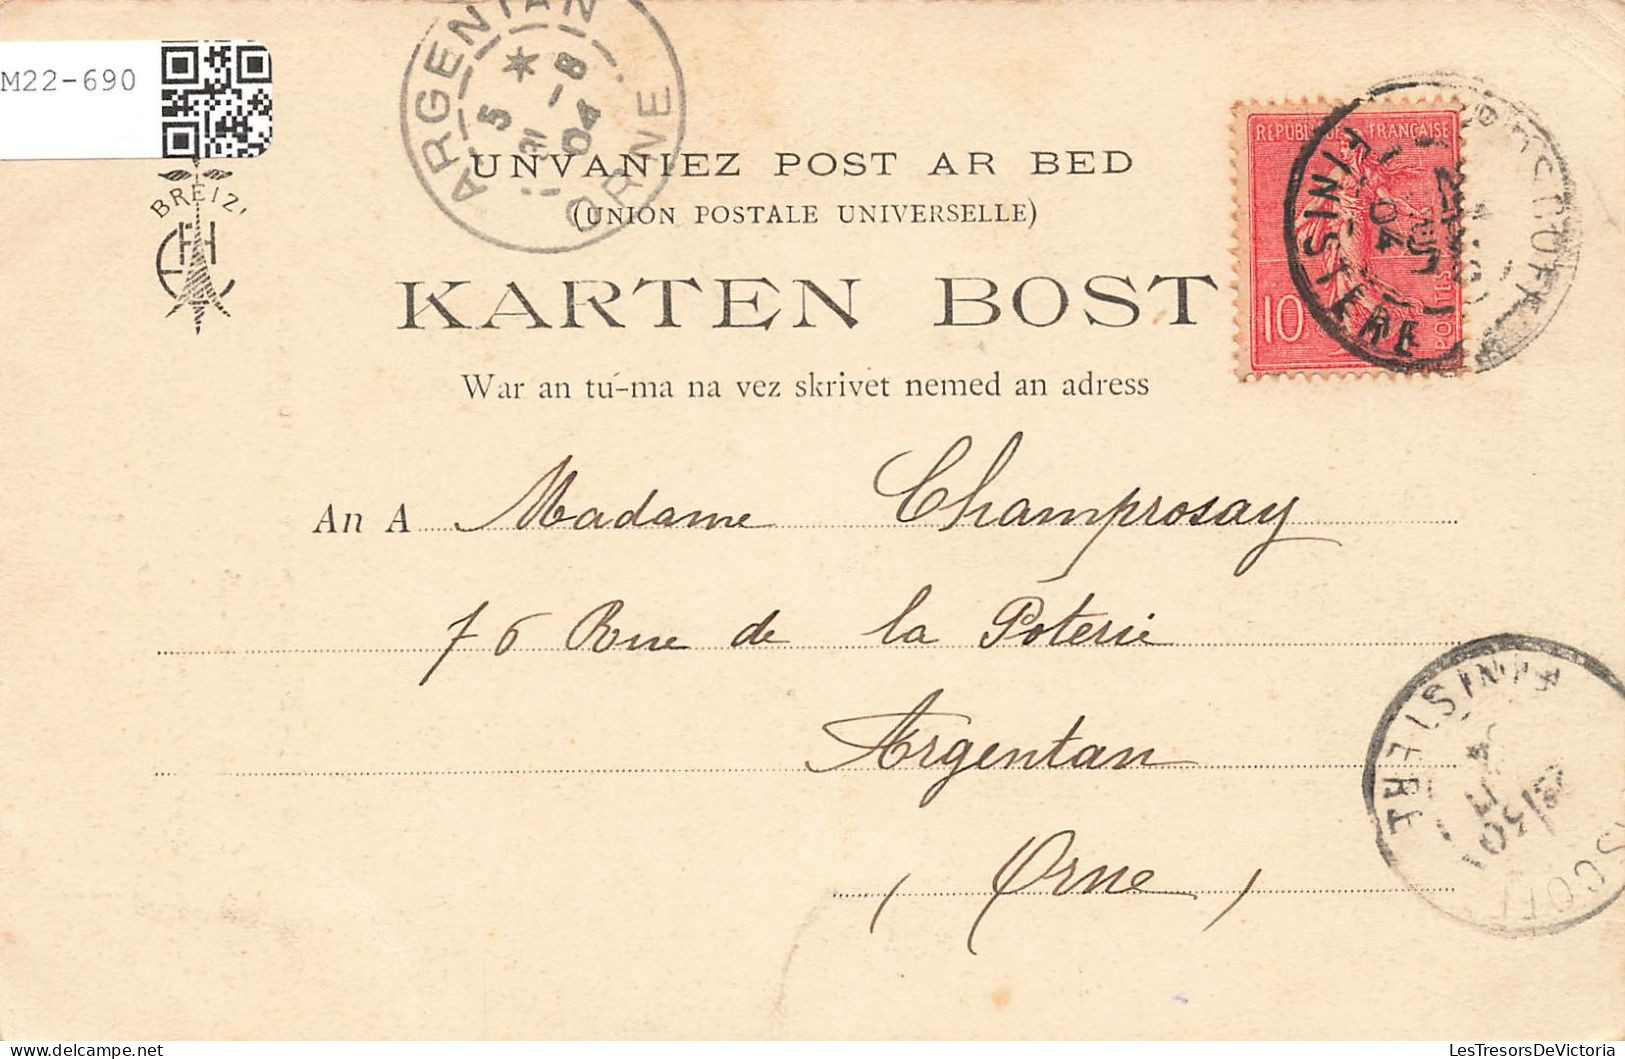 M22-690
ARGENTAN
5 * 8
04
ORNE
BREIZ'
UNVANIEZ POST AR BED
(UNION POSTALE UNIVERSELLE)
REPUBLIQUE FRANÇAISE
10
POSTES
ROSCOFF
04
FINISTERE
KARTEN BOST
War an tú-ma na vez skrivet nemed an adress
An A Madame Champrosay
76 Rue de la Poterie
Argentan
(Orne)
FINISTERE
LesTresorsDeVictoria